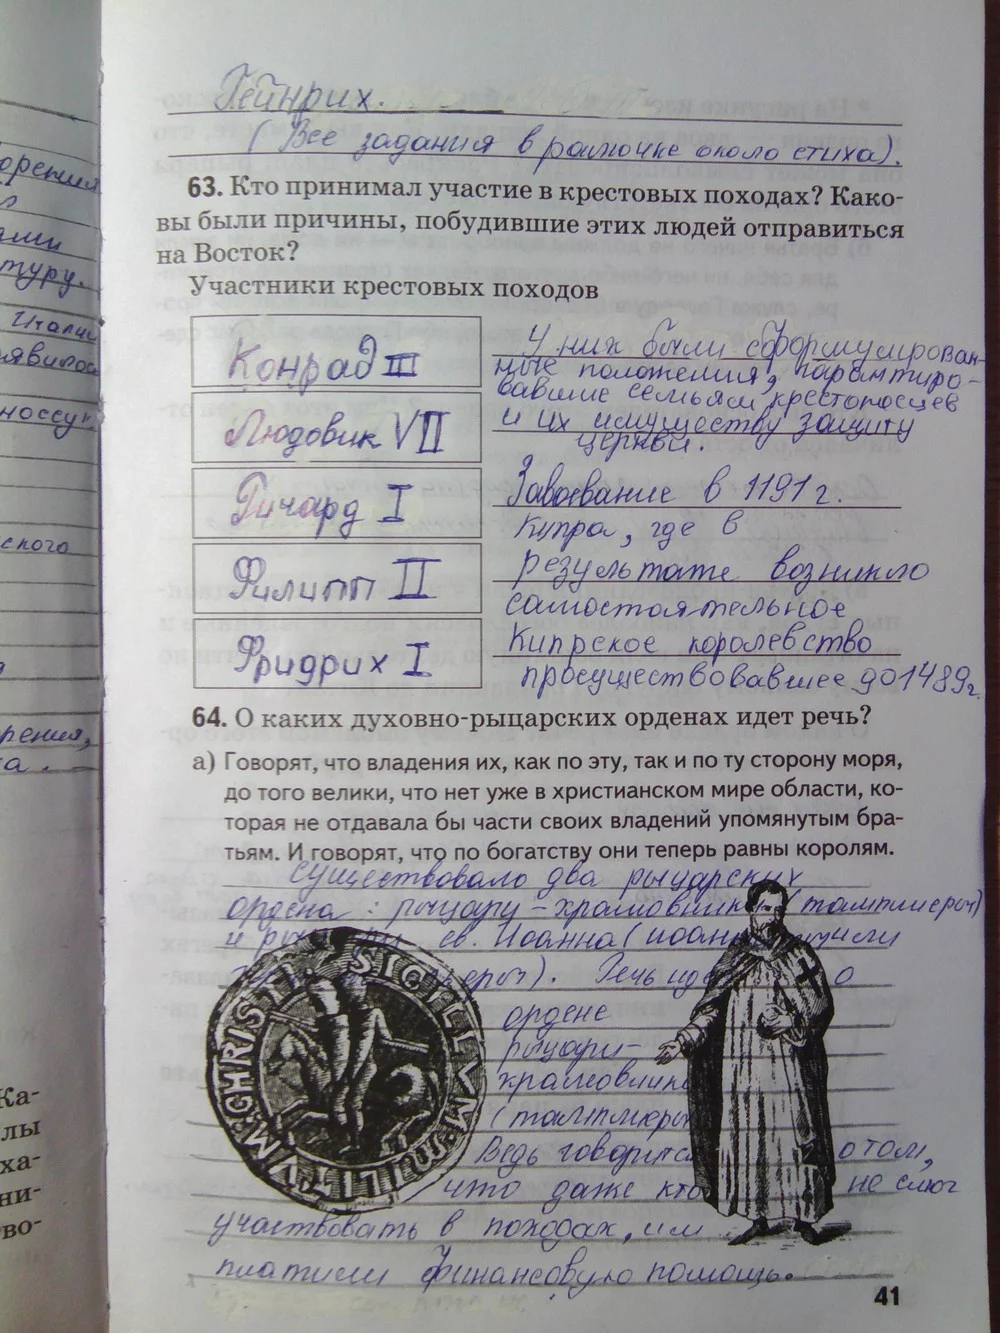 Гейнрих.
(Все задания в рамочке около стиха).
63. Кто принимал участие в крестовых походах? Како-
вы были причины, побудившие этих людей отправиться
на Восток?
Участники крестовых походов
Конрад III
У них были сформулирован-
ные положения, гарантиро-
вавшие семьям крестоносцев
Людовик VII
и их имуществу защиту
церкви.
Ричард I
Завоевание в 1191 г.
Кипра, где в
Филипп II
результате возникло
самостоятельное
Фридрих I
Кипрское королевство
просуществовавшее до 1489г.
64. О каких духовно-рыцарских орденах идет речь?
а) Говорят, что владения их, как по эту, так и по ту сторону моря,
до того велики, что нет уже в христианском мире области, ко-
торая не отдавала бы части своих владений упомянутым бра-
тьям. И говорят, что по богатству они теперь равны королям.
Существовало два рыцарских
ордена: рыцари-храмовники (тамплиеры)
и св. Иоанна или
Речь о
ордене
рыцари-
(тамплиеры
Ведь говорится о том,
что даже кто не смог
участвовать в походах, им
платили финансовую помощь.
SIGILLVM MILITVM CHRISTI
41
орения
ами
туру.
Италии
явилось
носсу
ского
рения,
ка.
Ка-
лы
ха-
ни-
во-